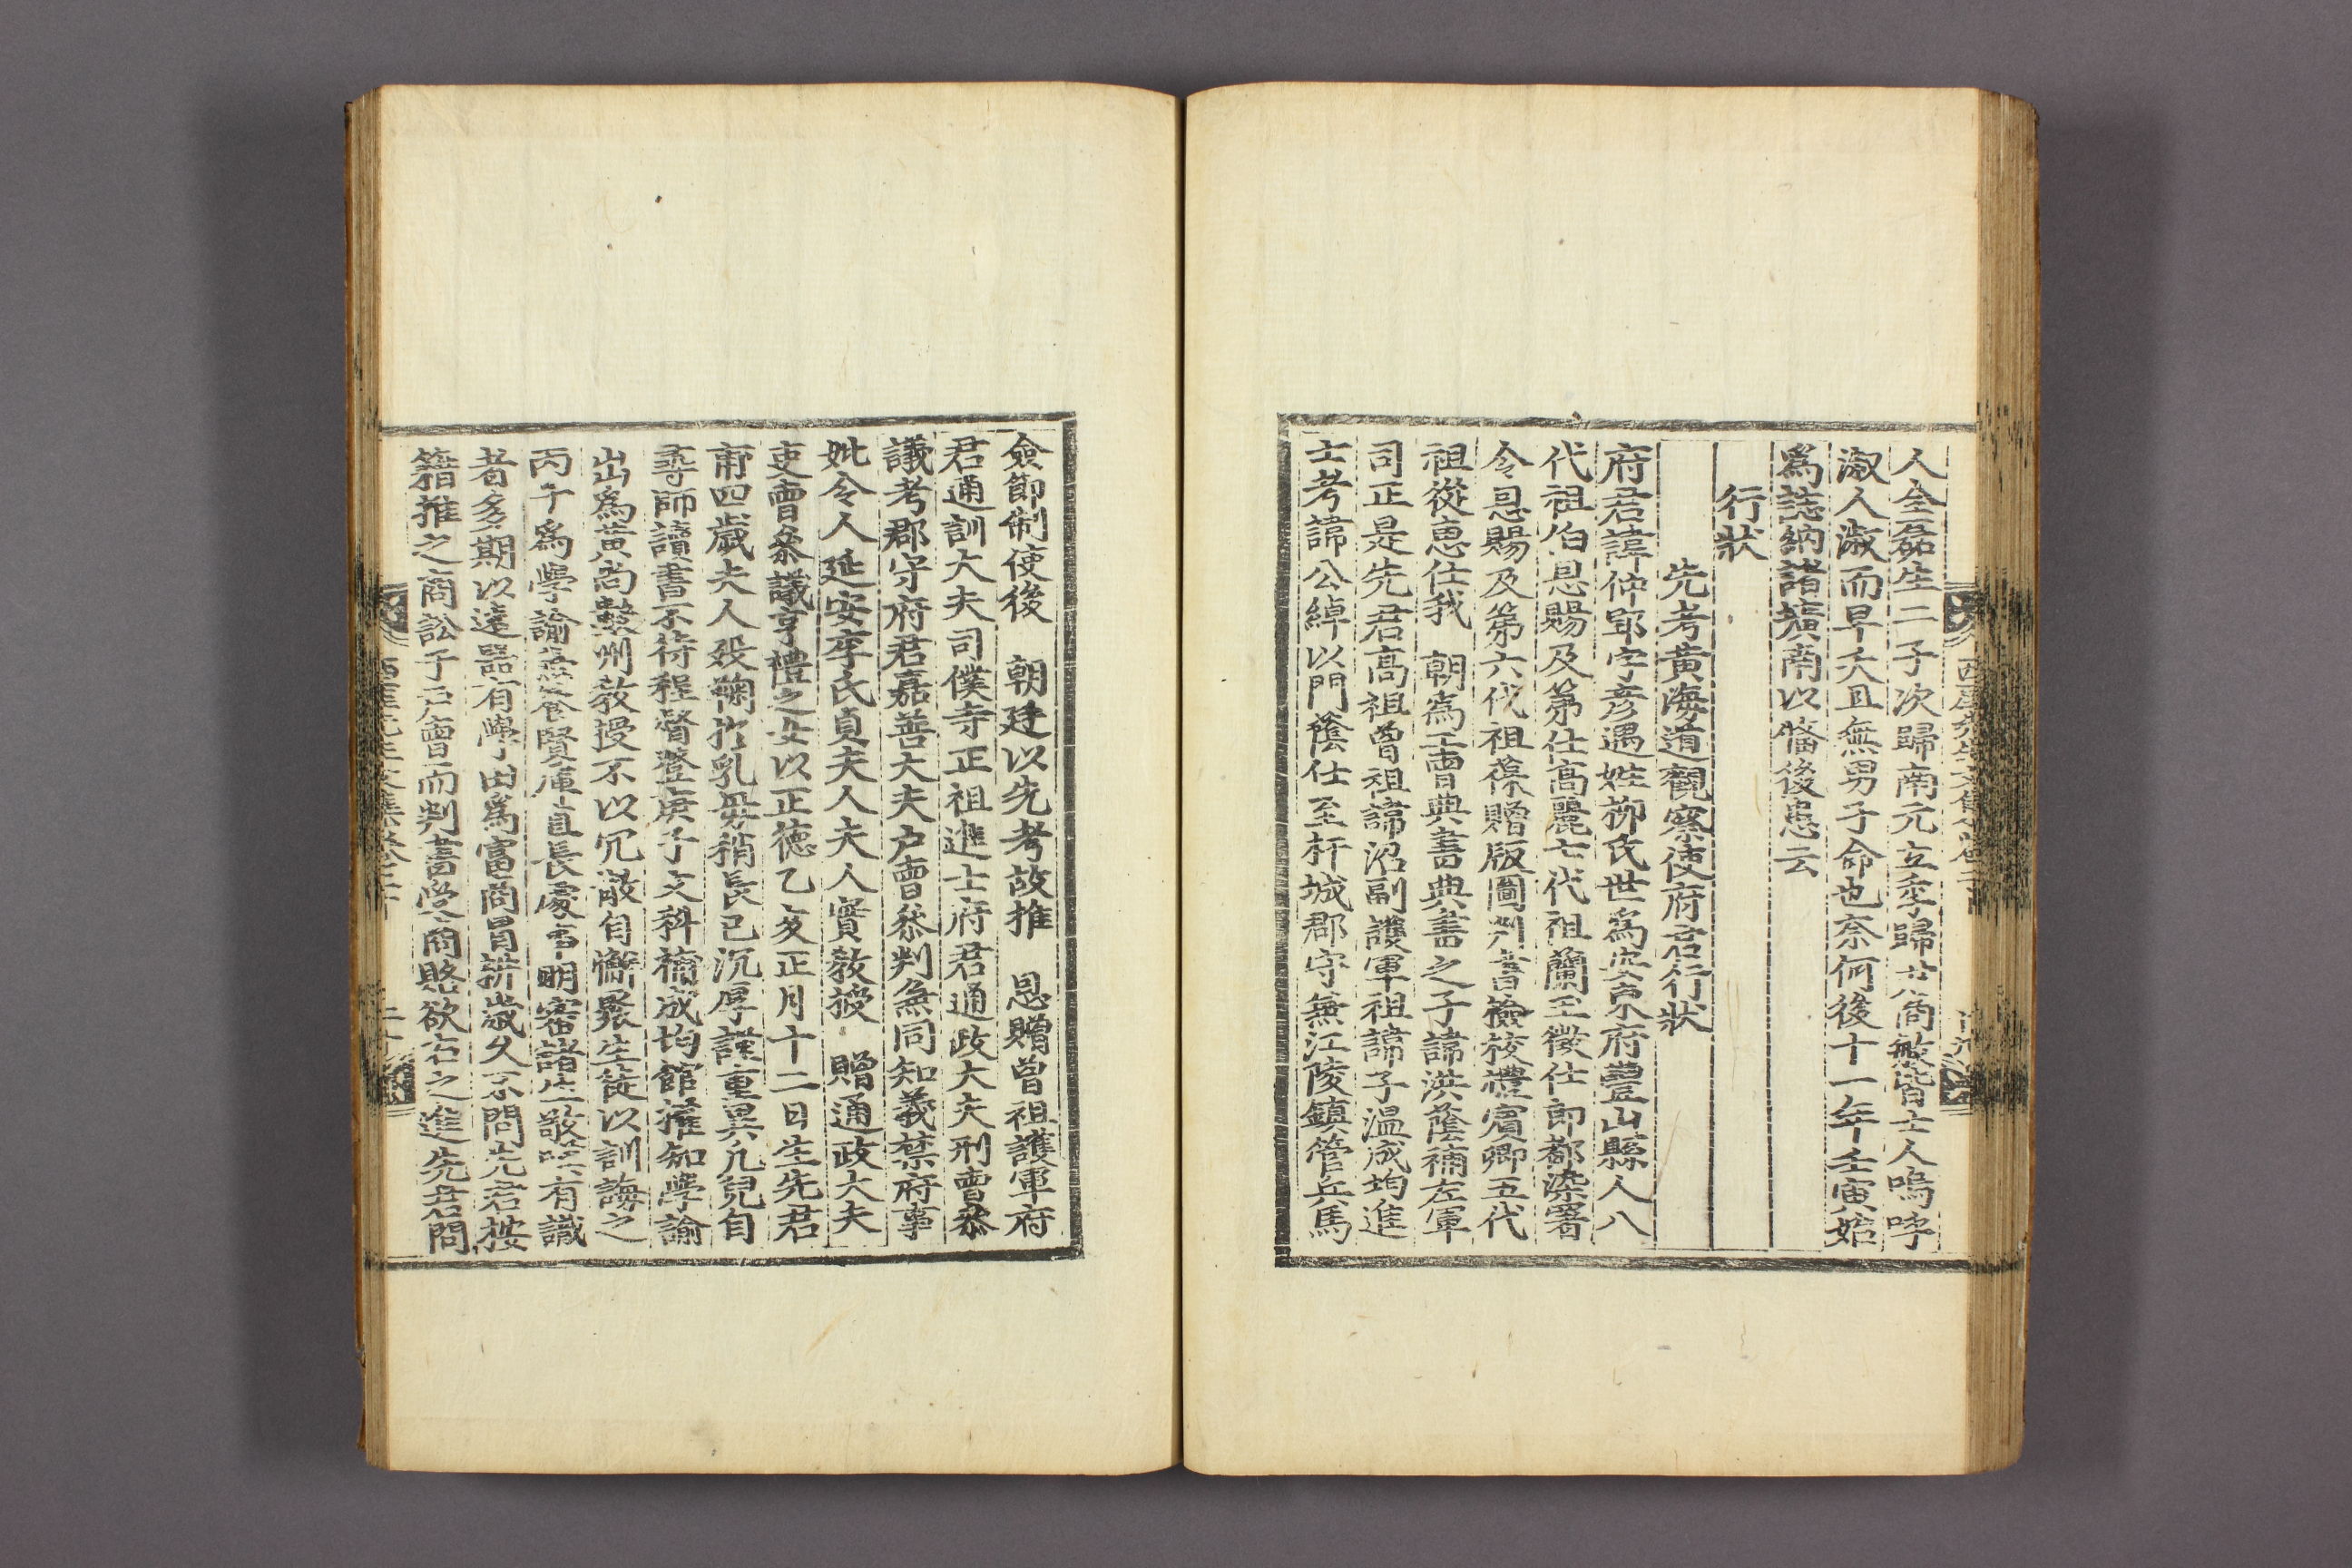 人金磊生二子次歸南元立季歸
淑人淑而早夭且無男子命也奈何後十一年壬寅始
爲誌納諸壙南以備後患云
行狀
先考黃海道觀察使府君行狀
府君諱仲郢字彦遇姓柳氏世爲安東府豐山縣人八
代祖伯恩賜及第仕高麗七代祖蘭玉徵仕郎都染署
令恩賜及第六代祖葆贈版圖判書檢校禮賓卿五代
祖從惠仕我 朝爲工曹典書典書之子諱洪蔭補左軍
司正是先君高祖曾祖諱沼副護軍祖諱子溫成均進
士考諱公綽以門蔭仕至杆城郡守兼江陵鎭管兵馬
僉節制使後 朝廷以先考故推 恩贈曾祖護軍府
君通訓大夫司僕寺正祖進士府君通政大夫刑曹參
議考郡守府君嘉善大夫戶曹參判兼同知義禁府事
妣令人延安李氏貞夫人夫人實敎授 贈通政大夫
吏曹參議亨禮之女以正德乙亥正月十二日生先君
甫四歲夫人歿鞠於乳母稍長已沉厚謹重異凡兒自
尋師讀書不待程督登庚子文科補成均館權知學諭
出爲黃尚數州敎授不以冗散自懈聚生徒以訓誨之
丙午爲學諭兼養賢庫直長處事明審諸生敬 有識
者多期以遠器有學田爲富商冒耕歲久不問先君按
籍推之商訟于戶曹而判書受商賂欲右之進先君問
西厓先生文集卷二十